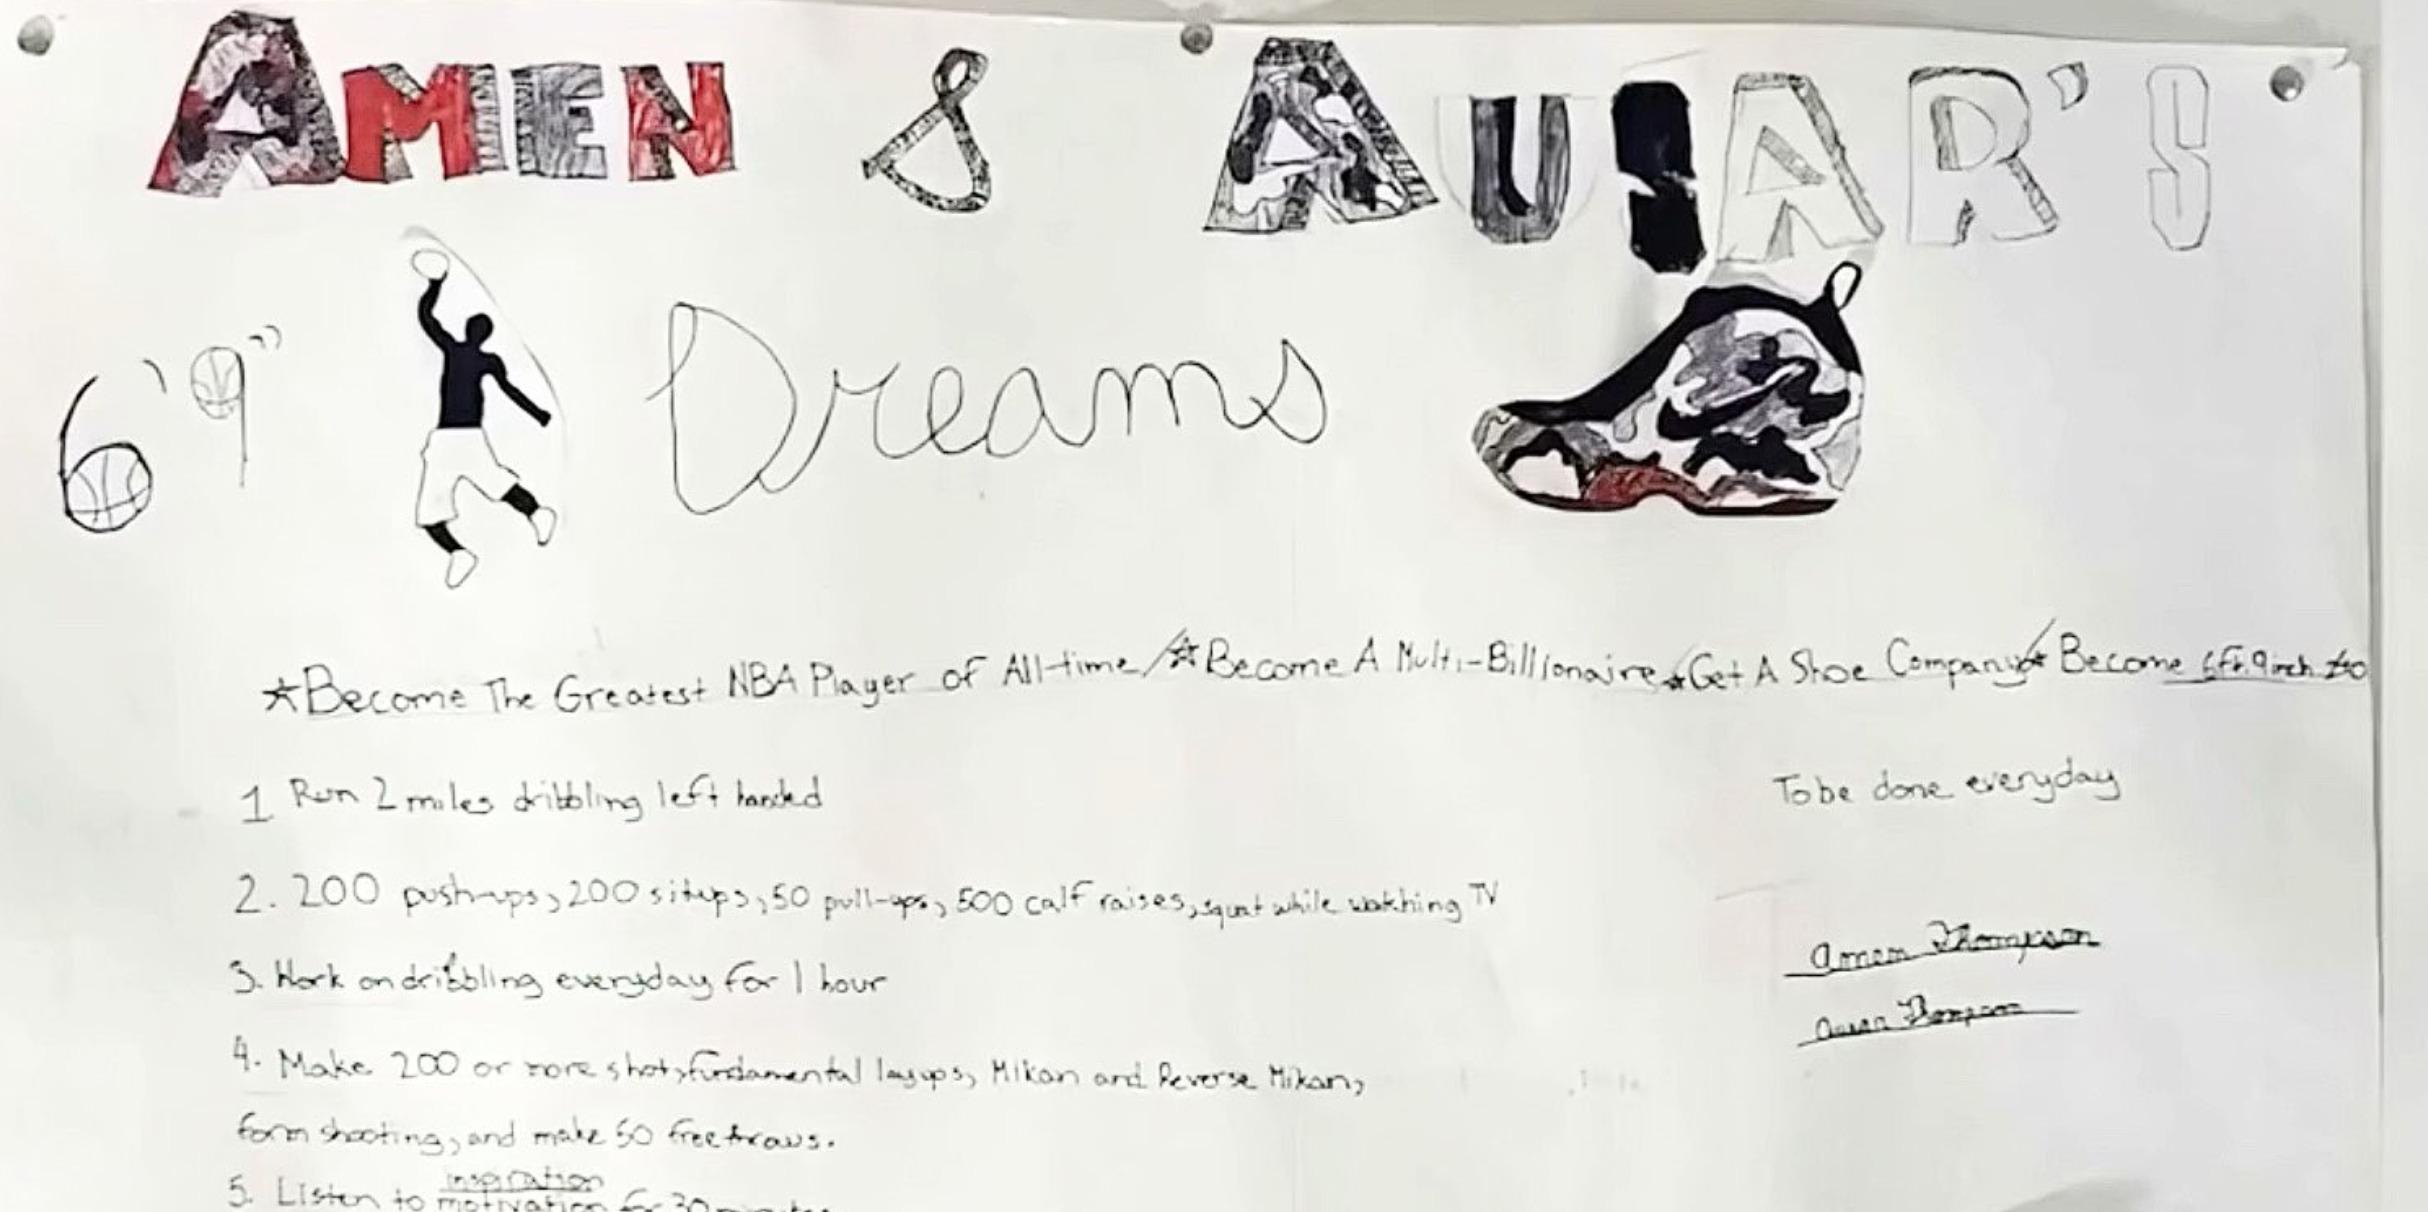 AMEN & AUSAR'S
6'9" Dreams
☆Become The Greatest NBA Player of All-time/☆Become A Multi-Billionaire☆Get A Shoe Company/☆Become 6ft. 9inch
1 Run 2 miles dribbling left handed
To be done everyday
2. 200 push-ups, 200 situps, 50 pull-ups, 500 calf raises, squat while watching TV
3. Work on dribbling everyday for 1 hour
Amen Thompson
Ausar Thompson
4. Make 200 or more shots, fundamental layups, Mikan and Reverse Mikan,
form shooting, and make 50 free throws.
inspiration
5. Listen to motivation for 30 minutes